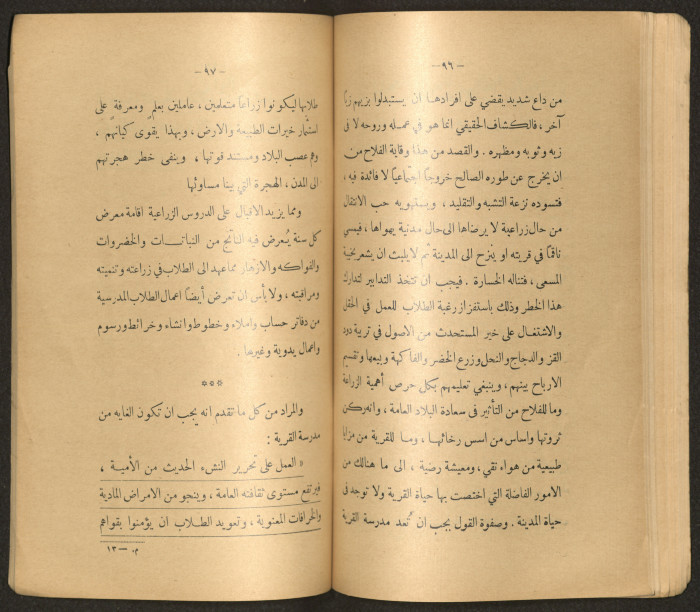 — ٩٦ —
من داع شديد يقضي على افرادها ان يستبدلوا بزيهم زيًا
آخر ، فالكشاف الحقيقي انما هو في عمله وروحه لا في
زيه وثوبه ومظهره . والقصد من هذا وقاية الفلاح من
ان يخرج عن طوره الصالح خروجًا اجتماعيًا لا فائدة فيه ،
فتسوده نزعة التشبه والتقليد ، ويستهويه حب الانتقال
من حال زراعية لا يرضاها الى حال مدنية يهواها ، فيمسي
ناقمًا في قريته او ينزح الى المدينة ثم لا يلبث ان يشعر بخيبة
المسعى ، فتناله الخسارة . فيجب ان تتخذ التدابير لتدارك
هذا الخطر وذلك باستفزاز رغبة الطلاب للعمل في الحقل
والاشتغال على خير المستحدث من الاصول في تربية دود
القز والدجاج والنحل وزرع الخضر والفاكهة وبيعها وتقسيم
الارباح بينهم ، وينبغي تعليمهم بكل حرص أهمية الزراعة
وما للفلاح من التأثير في سعادة البلاد العامة ، وانه ركن
ثروتها واساس من اسس رخائها ، وما للقرية من مزايا
طبيعية من هواء نقي ، ومعيشة رضية ، الى ما هنالك من
الامور الفاضلة التي اختصت بها حياة القرية ولا توجد في
حياة المدينة . وصفوة القول يجب ان تُعد مدرسة القرية
— ٩٧ —
طلابها ليكونوا زراعًا متعلمين ، عاملين بعلمٍ ومعرفةٍ على
استثمار خيرات الطبيعة والارض ، وبهذا يقوى كيانهم ،
وهم عصب البلاد ومستمد قوتها ، وينفى خطر هجرتهم
الى المدن ، الهجرة التي بينا مساوئها
ومما يزيد الاقبال على الدروس الزراعية اقامة معرض
كل سنة يُعرض فيه الناتج من النباتات والخضروات
والفواكه والازهار مما عهد الى الطلاب في زراعته وتنميته
ومراقبته ، ولا بأس ان تعرض أيضًا اعمال الطلاب المدرسية
من دفاتر حساب واملاء وخطوط وانشاء وخرائط ورسوم
واعمال يدوية وغيرها .
***
والمراد من كل ما تقدم انه يجب ان تكون الغايه من
مدرسة القرية :
« العمل على تحرير النشء الحديث من الأمية ،
فيرتفع مستوى ثقافته العامة ، وينجو من الامراض المادية
والخرافات المعنوية ، وتعويد الطلاب ان يؤمنوا بقواهم
م. — ١٣